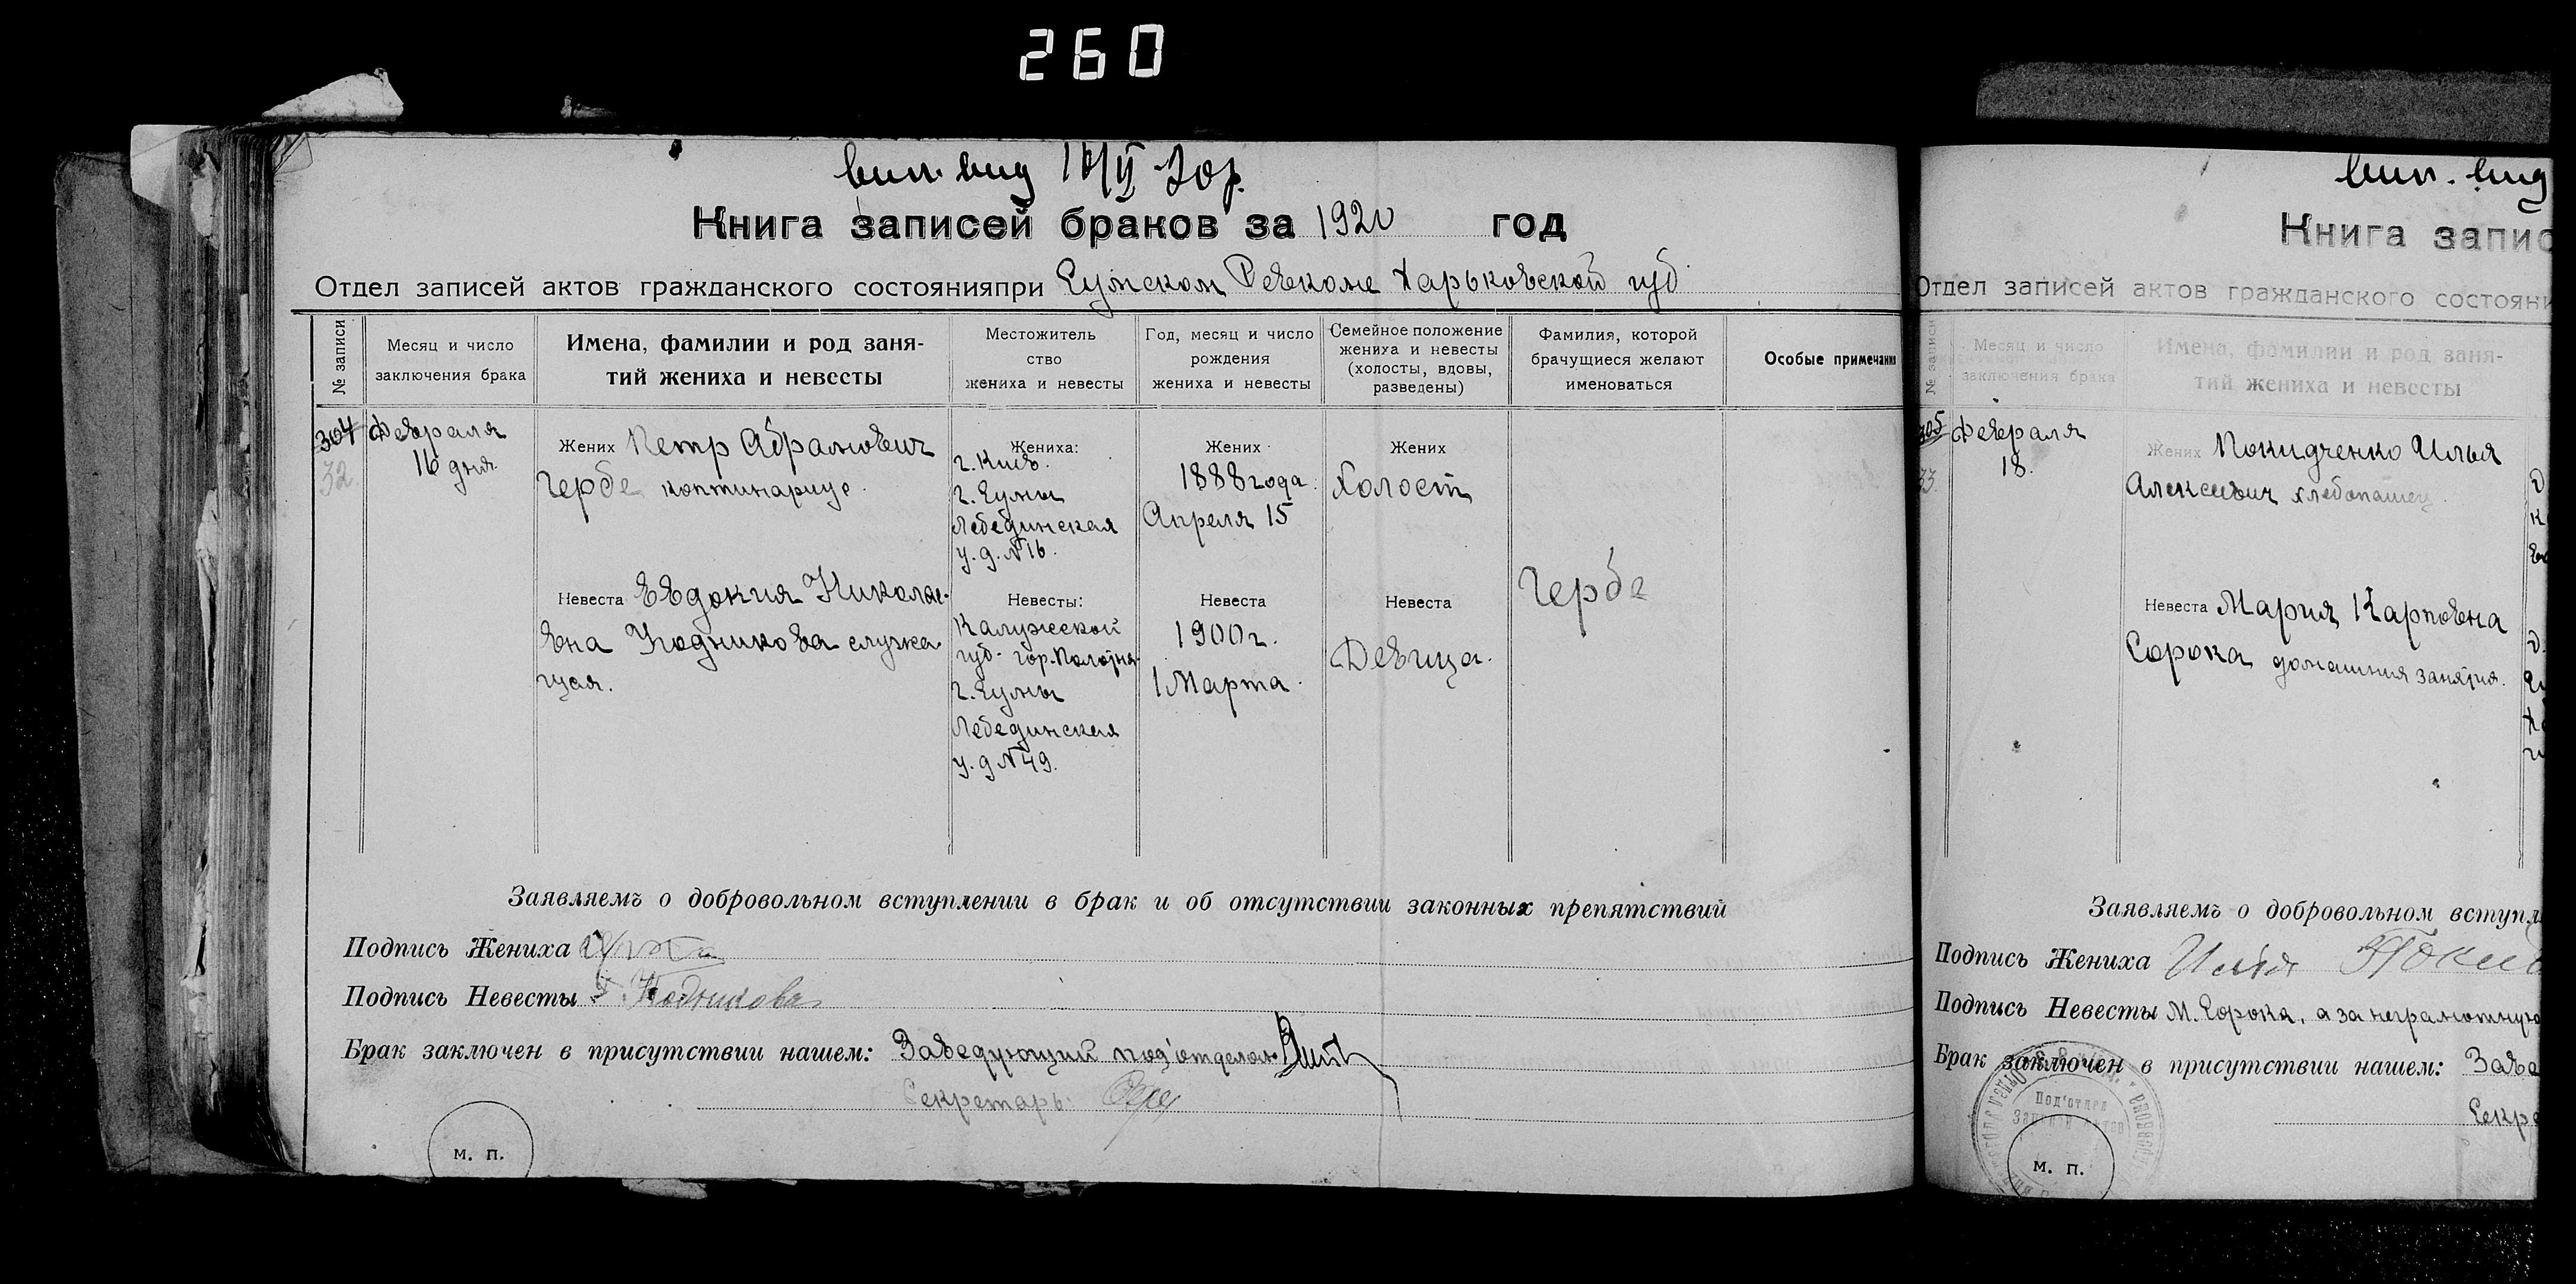 260
вип. вид 16/II 20 р.
Книга записей браков за 1920 год
Отдел записей актов гражданского состоянияпри Сумском Ревкоме Харьковской губ.
№ записи
Месяц и число
заключения брака
Имена, фамилии и род заня-
тий жениха и невесты
Местожитель
ство
жениха и невесты
Год, месяц и число
рождения
жениха и невесты
Семейное положение
жениха и невесты
(холосты, вдовы,
разведены)
Фамилия, которой
брачущиеся желают
именоваться
Особые примечани
304
32.
Февраля
16 дня.
Жених Петр Абрамович
Гербе
Жениха:
г. Киев.
г. Сумы
Лебединская
у. д. № 16.
Жених
1888 года
Апреля 15
Жених
Холост
Невеста Евдокия Николае-
вна служа
щая.
Невесты:
Калужской
губ. гор.
г. Сумы
Лебединская
у. д № 49.
Невеста
1900 г.
1 Марта.
Невеста
Девица.
Гербе
Заявляемъ о добровольном вступлении в брак и об отсутствии законных препятствий
Подпись Жениха
Подпись Невесты
Брак заключен в присутствии нашем: Заведующий под'отделом
Секретарь:
м. п.
вип. вид
Книга запис
Отдел записей актов гражданского состояни
№ записи
Месяц и число
заключения брака
Имена, фамилии и род заня-
тий жениха и невесты
305
33.
Февраля
18.
Жених Покидченко Илья
Алексеевич хлебопашец.
Невеста Мария Карповна
Сорока домашния занятия.
Заявляемъ о добровольном вступл
Подпись Жениха Илія Покид
Подпись Невесты М. Сорока, а за неграмотную
Брак заключен в присутствии нашем: Заве
Секре
Под'отдел
м. п.